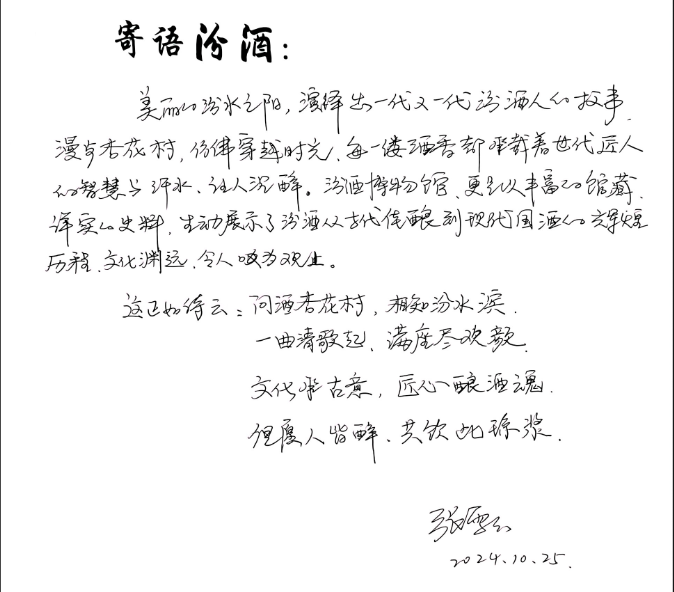 寄语汾酒：
美丽的汾水之阳，演绎出一代又一代汾酒人的故事.
漫步杏花村，仿佛穿越时光、每一缕酒香都承载着世代匠人
的智慧与汗水、让人沉醉。汾酒博物馆、更是以丰富的馆藏、
详实的史料，生动展示了汾酒从古代佳酿到现代国酒的光辉
历程、文化渊远、令人叹为观止。
这正如诗云：问酒杏花村，相知汾水滨.
一曲清歌起、满座尽欢颜.
文化承古意，匠心酿酒魂.
但愿人皆醉、共饮此琼浆.
2024.10.25.